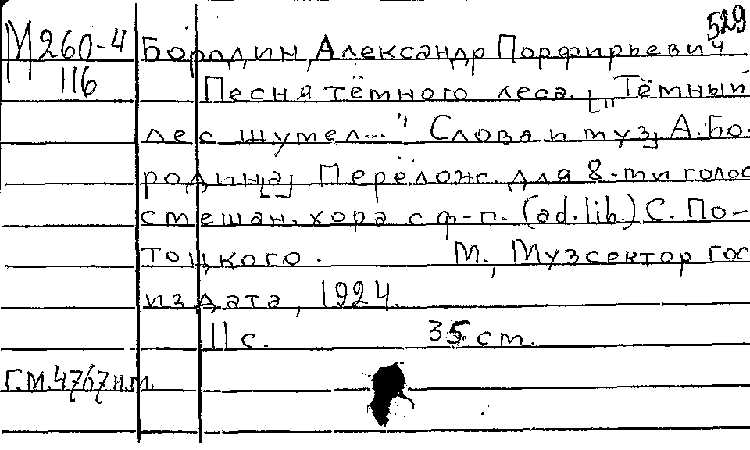 529
М260-4 Бородин, Александр Порфирьевич
116 Песня тёмного леса. [„Тёмный
лес шумел..." Слова и муз] А. Бо-
родин[а] Перелож. для 8-ми голос
смешан. хора с ф-п. (ad. lib) С. По-
тоцкого. М., Музсектор Гос
издата, 1924.
11 с. 35 см.
Г.М. 4767 н.т.